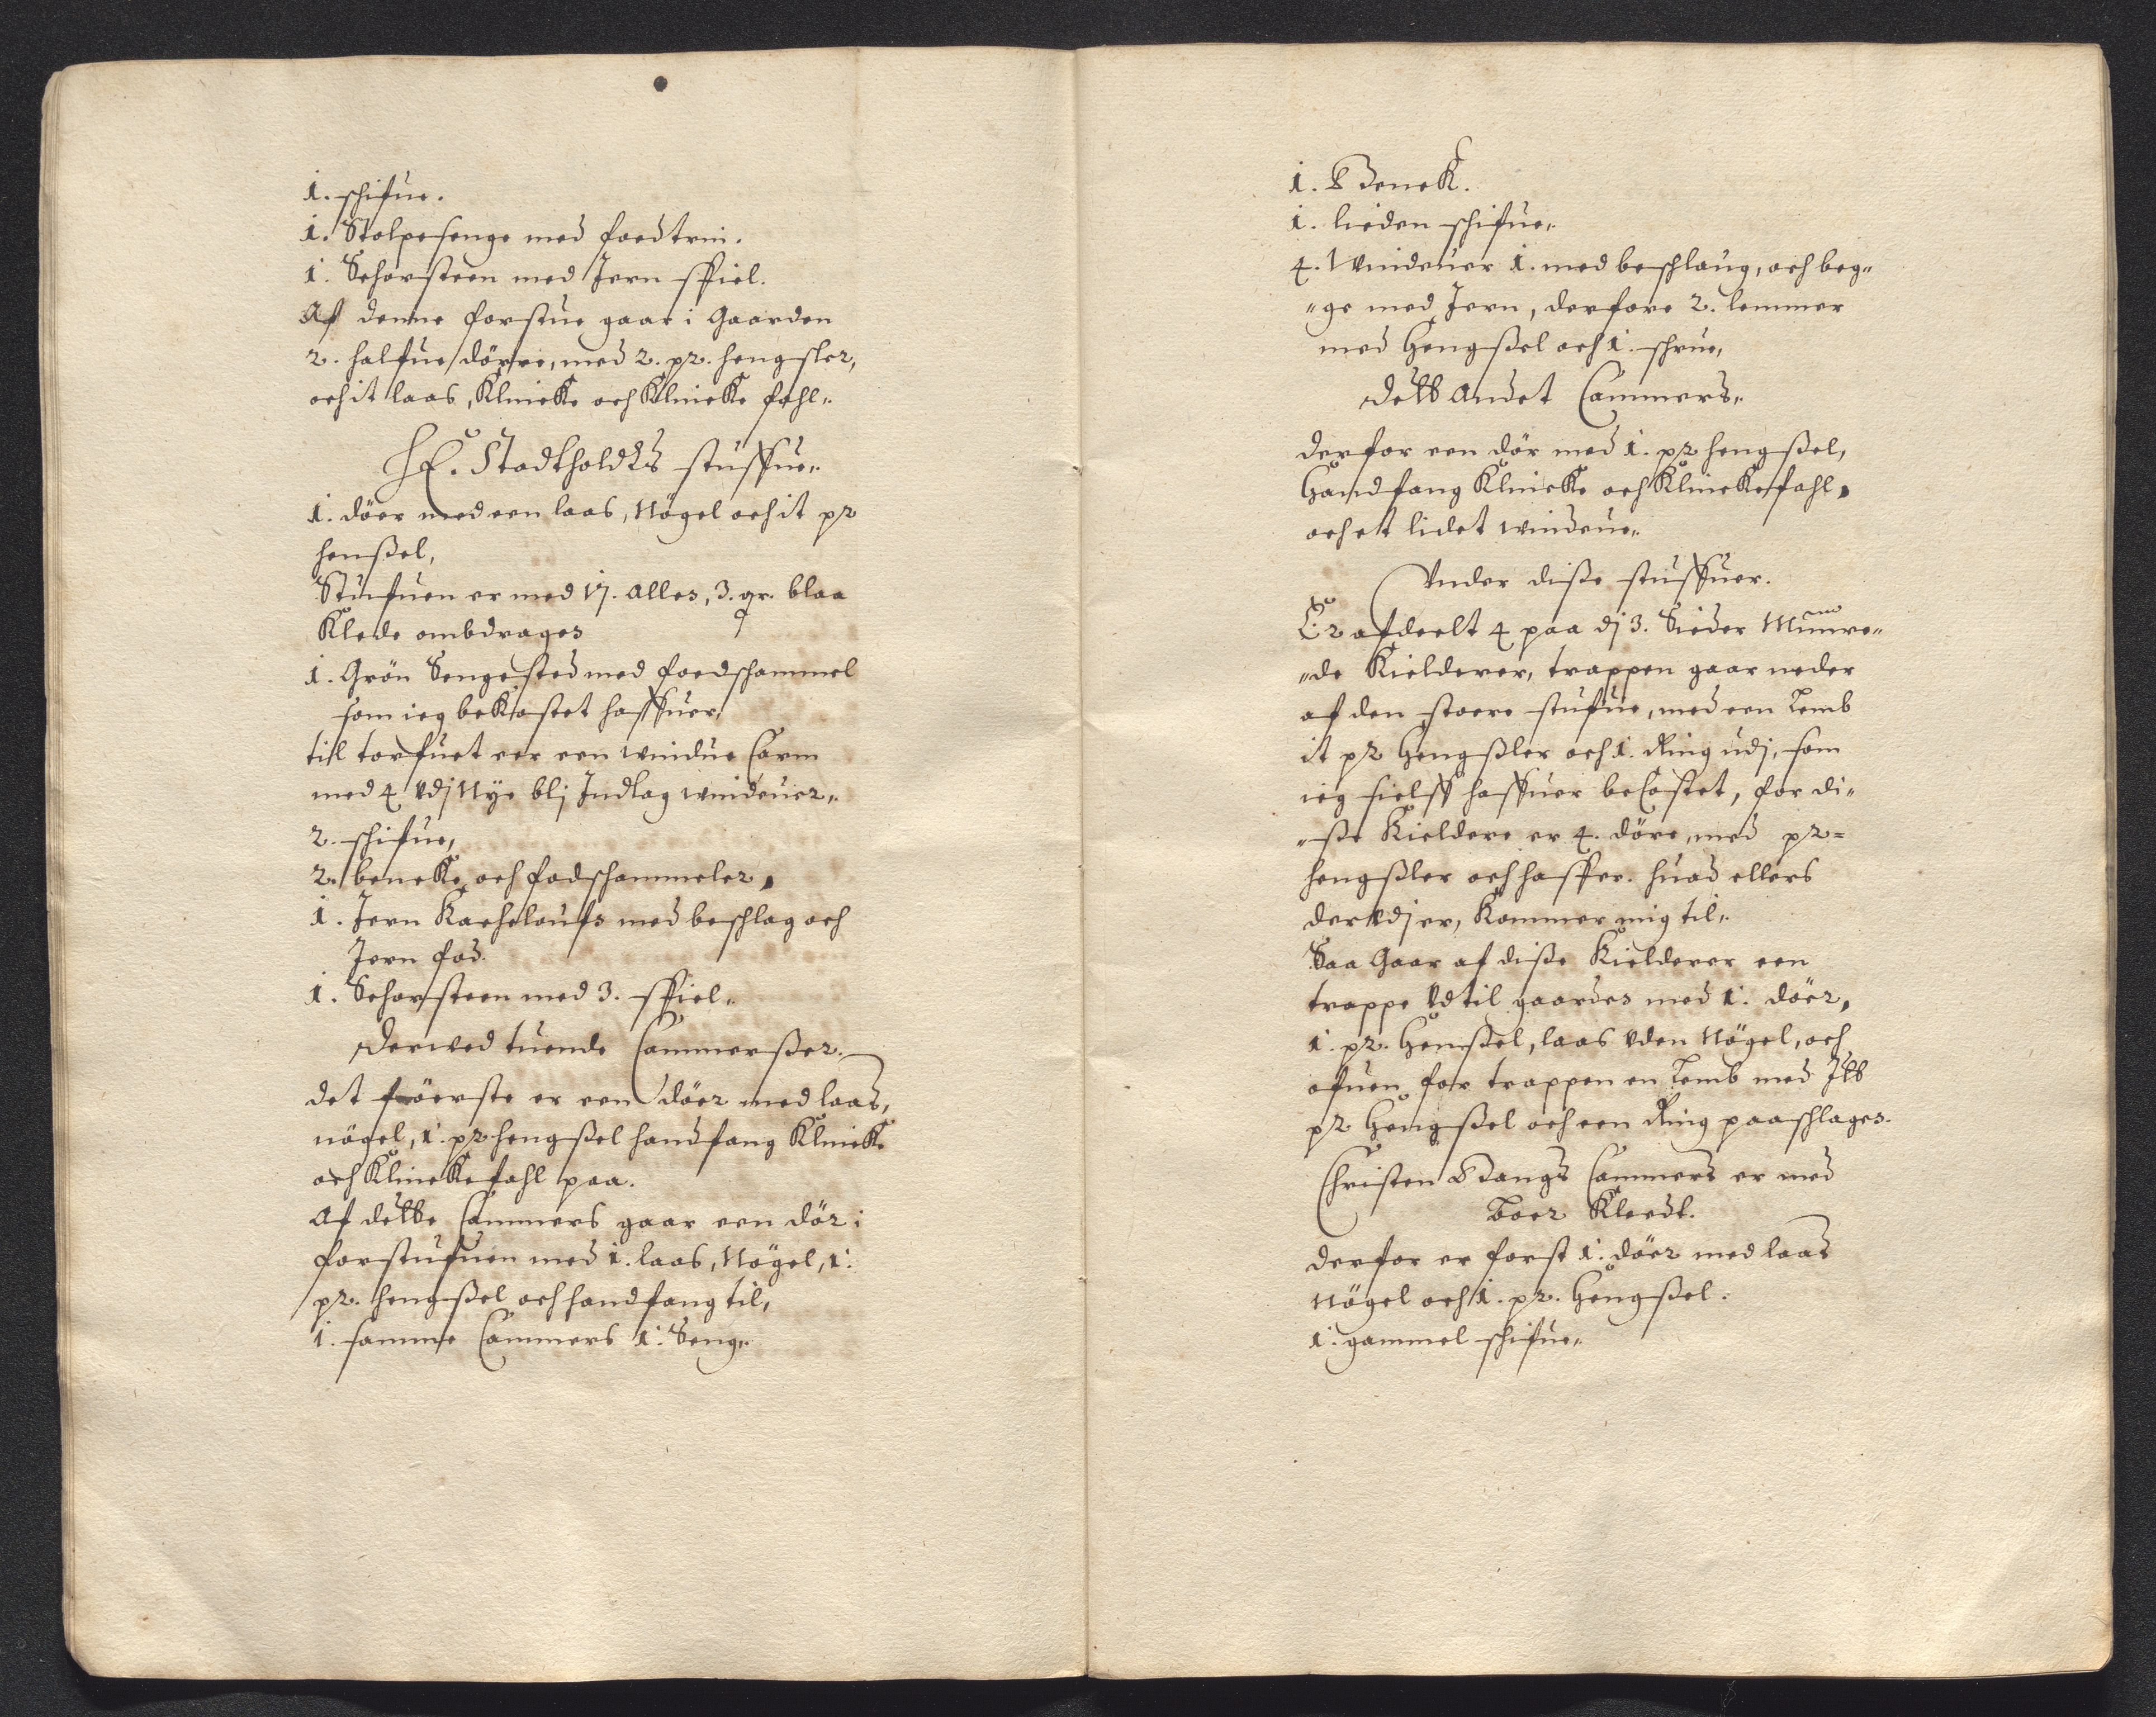 1. schifue.
1. Stolpesenge med foedtrin.
1. Schorsteen med Jern spiel.
Af denne forstue gaar i Gaarden
2. halfue dörre, med 2. pr. hengsler,
och it laas, Klincke och Klincke fahl,.
HE. Stadtholdrs stuffue,.
1. döer med een laas, Nögel och it pr
henßel,
Stuefuen er med 17. alles, 3. qr. blaa
Klede ombdrages
1. Grön Sengested med foedschammel
som ieg bekostet haffuer,
till torfuet eer een windue Carm
med 4 Vdj Nye blj Indlag windeuer,.
2. schifue,
2. bencke och fodschammeler,
1. Jern Kacheloufs med beschlag och
Jern fod.
1. Schorsteen med 3. spiel,.
Derwed tuende Cammerßer.
det föerste er een döer med laas,
nögel, 1. pr. hengßel handfang Klincke
och Klinckefahl paa.
Af dette Cammers gaar een dör i
forstufuen med 1. laas, Nögel, 1.
pr. hengßel och handfang til,
I. samme Cammers 1. Seng,.
1. Benck.
1. lieden schifue,.
4. Windeuer 1. med beschlaug, och beg„
„ge med Jern, derfore 2. lemmer
med Hengßel och 1. schrue,
Dett Andet Cammers,.
derfor een dör med 1. pr hengßel,
Handfang Klincke och Klinckefahl,
och et lidet windeue,.
Vnder diße stuffuer.
Er afdeelt 4 paa dj 3. Sieder Muure„
„de Kielderer, trappen gaar neder
af den stoere stufue, med een Lemb
it pr Hengßler och 1. Ring udj, som
ieg sielff haffuer beCostet, for di„
„ße Kieldere er 4. döre, med pr=
hengßler och haffer. huad ellers
dervdj er, Kommer mig til,.
Saa Gaar af diße Kielderer een
trappe Vd til gaardes med 1. döer,
1. pr. Henßel, laas vden Nögel, och
ofuen for trappen en Lemb med Itt
pr Hengßel och een Ring paaschlages.
Christen Bangs Cammers er med
Boer Kleedt.
derfor er forst 1. döer med laas
Nögel och 1. pr. Hengßel.
1. gammel schifue,.